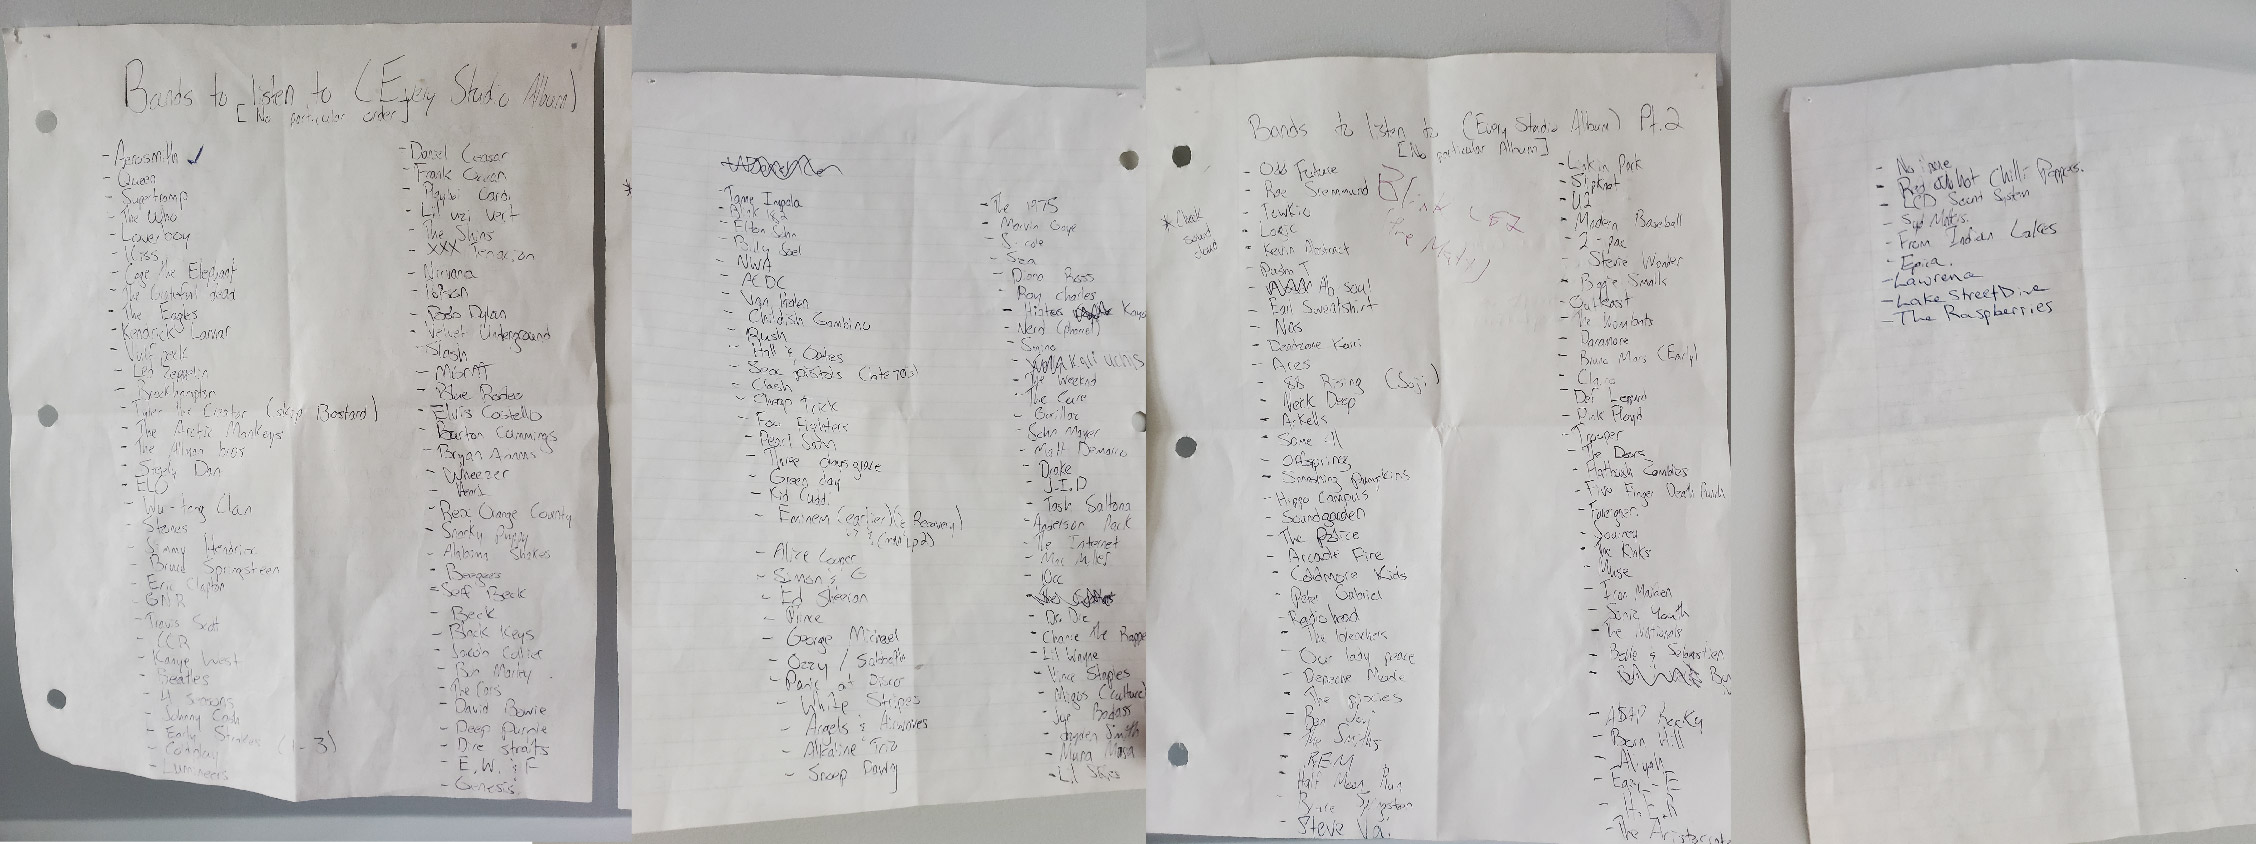 Bands to listen to (Every Studio Album)
[No particular order]
- Aerosmith ✓
- Queen
- Supertramp
- The Who
- Loverboy
- Kiss
- Cage the Elephant
- The Grateful dead
- The Eagles
- Kendrick Lamar
- Vulf peck
- Led Zeppelin
- Brockhampton
- Tyler the Creator (skip Bastard)
- The Arctic Monkeys
- The
- Steely Dan
- ELO
- Wu-tang Clan
- Stones
- Jimmy Hendrix
- Bruce Springsteen
- Eric Clapton
- GNR
- Travis Scot
- CCR
- Kanye West
- Beatles
- 4 seasons
- Johnny Cash
- Early Strokes (1-3)
- Coldplay
- Lumineers
- Daniel Ceasar
- Frank Ocean
- Playboi Cardi
- Lil uzi vert
- The Shins
- XXX Tentacion
- Nirvana
- Poison
- Bob Dylan
- Velvet Underground
- Slash
- MGMT
- Blue Rodeo
- Elvis Costello
- Burton Cummings
- Bryan Adams
- Wheezer
- Heart
- Rex Orange County
- Snarky Puppy
- Alabama Shakes
- Beegees
- Jeff Beck
- Beck
- Black Keys
- Jacob Collier
- Bob Marley
- The Cars
- David Bowie
- Deep Purple
- Dire straits
- E.W. & F
- Genesis
- Tame Impala
- Blink 182
- Elton John
- Billy Joel
- NWA
- ACDC
- Van Halen
- Childish Gambino
- Rush
- Hall & Oates
- Sex pistols
- Clash
- Cheap trick
- Foo Fighters
- Pearl Jam
- Three days grace
- Green day
- Kid Cudi
- Eminem (earlier) Recovery)
(mmlp2)
- Alice Cooper
- Simon & G
- Ed Sheeran
- Prince
- George Michael
- Ozzy / Sabbath
- Panic at Disco
- White Stripes
- Angels & Airwaves
- Alkaline Trio
- Snoop Dawg
- The 1975
- Marvin Gaye
- J. cole
- Sza
- Diana Ross
- Ray Charles
- Hiatus Kayo
- Nerd
- Kali uchis
- The Weeknd
- The Cure
- Gorillaz
- John Mayer
- Matt Demarco
- Drake
- J.I.D
- Tash Saltana
- Anderson Pack
- The Internet
- Mac Miller
- 10cc
- Dr. Dre
- Chance the Rappe
- Lil Wayne
- Vince Staples
- Migos (culture)
- Joye Badass
- Jayden Smith
- Mura Masa
- Lil Skies
Bands to listen to (Every Studio Album) Pt.2
[No particular Album]
* Check
sound
cloud
- Odd Future
- Rae Sremmurd
- Towkio
- Logic
- Kevin Abstract
- Pusha T
- Ab soul
- Earl Sweatshirt
- Nas
- Denzone Kairi
- Aries
- 88 Rising (Joji)
- Neck Deep
- Arkells
- Some 41
- Offspring
- Smashing pumpkins
- Hippo Campus
- Soundgarden
- The Police
- Arcade Fire
- Coldmore Kids
- Peter Gabriel
- Radiohead
- The bleachers
- Our lady peace
- Depeche Mode
- The pixies
- Bon Jovi
- The Smiths
- REM
- Half Moon Run
- Steve Vai
Blink
- Linkin Park
- Slipknot
- U2
- Modern Baseball
- 2-pac
- Stevie Wonder
- Biggie Smalls
- Outkast
- The Wombats
- Paramore
- Bruno Mars (Early)
- Clairo
- Def Lepard
- Pink Floyd
- Trooper
- The Doors
- Flatbush Zombies
- Five Finger Death Punch
- Foreigner
- Journey
- The Kinks
- Muse
- Iron Maiden
- Sonic Youth
- The
- Belle & Sebastien
- ASAP Rocky
- Aliyah
- Eazy-E
- H.E.R
- The Aristocrats
- No name
- Red Hot Chilli Peppers.
- LCD Sound System
- Syd Matters.
- From Indian Lakes
- Epica.
- Lawrence
- Lake Street Dive
- The Raspberries